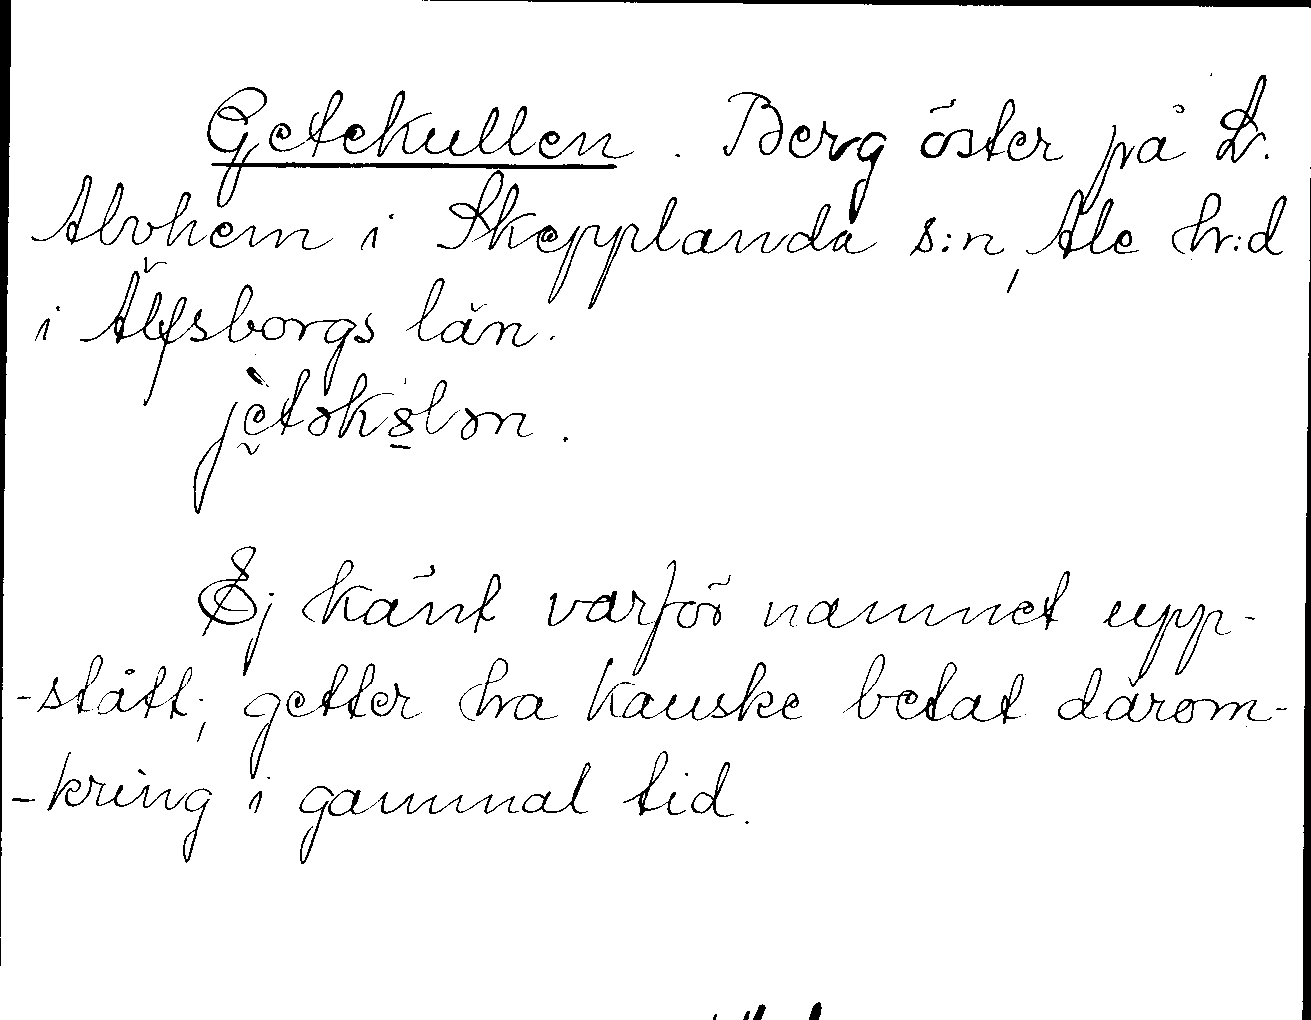 Getekullen. Berg öster på L.
Alvhem i Skepplanda s:n, Ale hr:d
i Älfsborgs län.
jètəkələn.
Ej känt varför namnet upp-
-stått; getter ha kanske betat därom-
-kring i gammal tid.